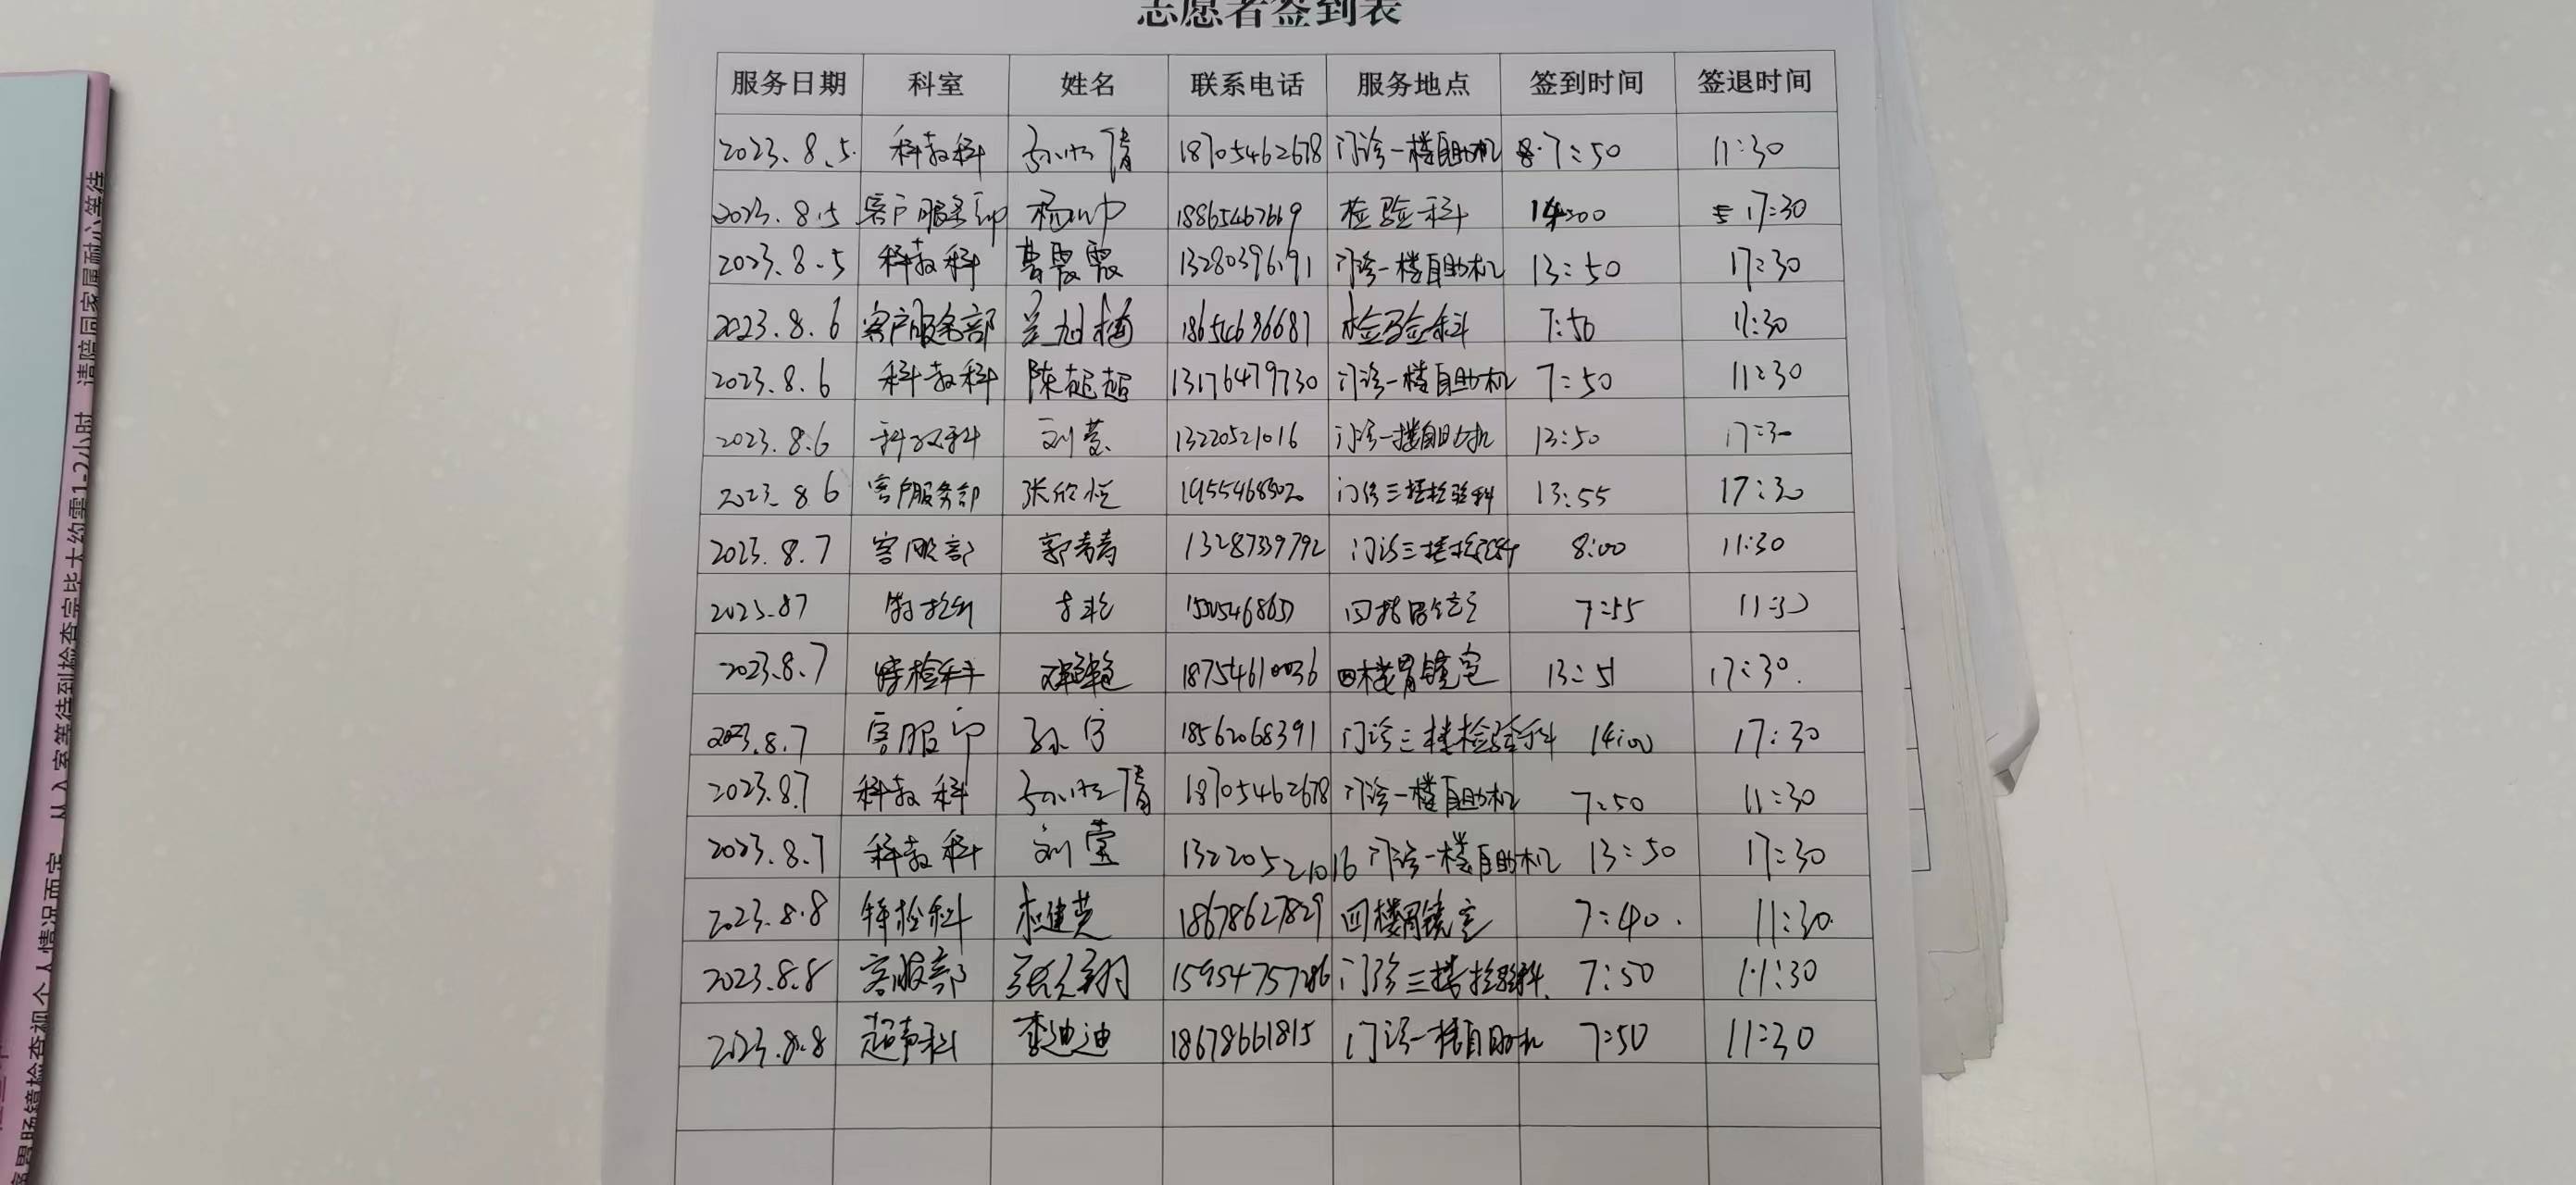 志愿者签到表
服务日期 科室 姓名 联系电话 服务地点 签到时间 签退时间
2023.8.5. 科教科 18705462678 门诊一楼自助机 7:50 11:30
2023.8.5 客户服务部 杨帅 18865467669 检验科 14:00 17:30
2023.8.5 科教科 曹霞霞 13280396191 门诊一楼自助机 13:50 17:30
2023.8.6 客户服务部 18654636687 检验科 7:50 11:30
2023.8.6 科教科 陈超超 13176479730 门诊一楼自助机 7:50 11:30
2023.8.6 科教科 刘莹 13220521016 门诊一楼自助机 13:50 17:30
2023.8.6 客户服务部 张欣恒 门诊三楼检验科 13:55 17:30
2023.8.7 客服部 郭青青 13287339792 门诊三楼检验科 8:00 11:30
2023.8.7 特检科 四楼胃镜室 7:55 11:30
2023.8.7 特检科 18754610036 四楼胃镜室 13:51 17:30.
2023.8.7 客服部 18562068391 门诊三楼检验科 14:00 17:30
2023.8.7 科教科 18705462678 门诊一楼自助机 7:50 11:30
2023.8.7 科教科 刘莹 13220521016 门诊一楼自助机 13:50 17:30
2023.8.8 特检科 18678627829 四楼胃镜室 7:40. 11:30.
2023.8.8 客服部 15954757286 门诊三楼检验科 7:50 11:30
2023.8.8 超声科 李迪迪 18678661815 门诊一楼自助机 7:50 11:30
请陪同家属耐心等待
从入室等待到检查完毕大约需1-2小时
胃肠镜检查视个人情况而定